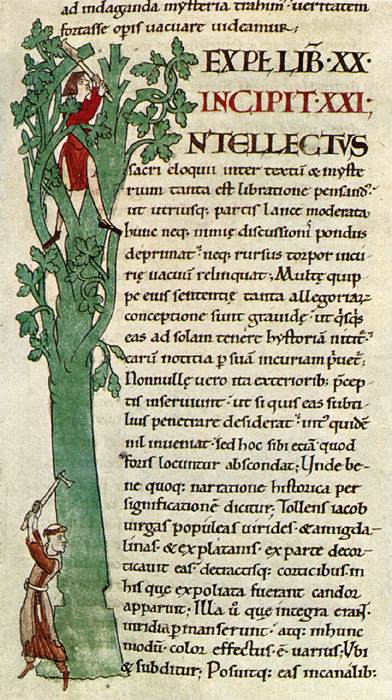 ad indaganda mysteria trahim᾽ veritatem
fortasse opis vacuare videamur;
EXPŁ LIB̄ · XX ·
INCIPIT · XXI ·
INTELLECTVS
sacri eloquii inter textū & myste
rium tanta est libratione pensand᾽
ut utriusq; partis lance moderata
hunc neq; nimię discussioni᷒ pondus
deprimat · neq; rursus torpor incu
rię vacuū relinquat; Multę quip
pe eius sententię tanta allegoriaꝝ
conceptione sunt gravidę · ut q̇sq̇s
eas ad solam tenere hystoriā nitit᷑ ·
earū notitia ꝑ suā incuriam p̓vet᷑;
Nonnullę vero ita exteriorib; p̄cep
tis inserviunt · ut si quis eas subti
lius penetrare desiderat · int᾽ quidē
nil inveniat · sed hoc sibi etiā quod
foris locuntur abscondat; Unde be
ne quoq; narratione historica per
significationē dicitur; Tollens iacob
virgas populeas virides · & amigda
linas · & ex platanis · ex parte decor
ticavit eas · detractisq; corticibus in
his quę expoliata fuerant candor
apparuit; Illa ū quę integra eraꞇ̄
viridia ꝑmanserunt · atq; inhunc
modū color effectus ē varius; Ubi
& subditur; Posuitq; eas incanalib: